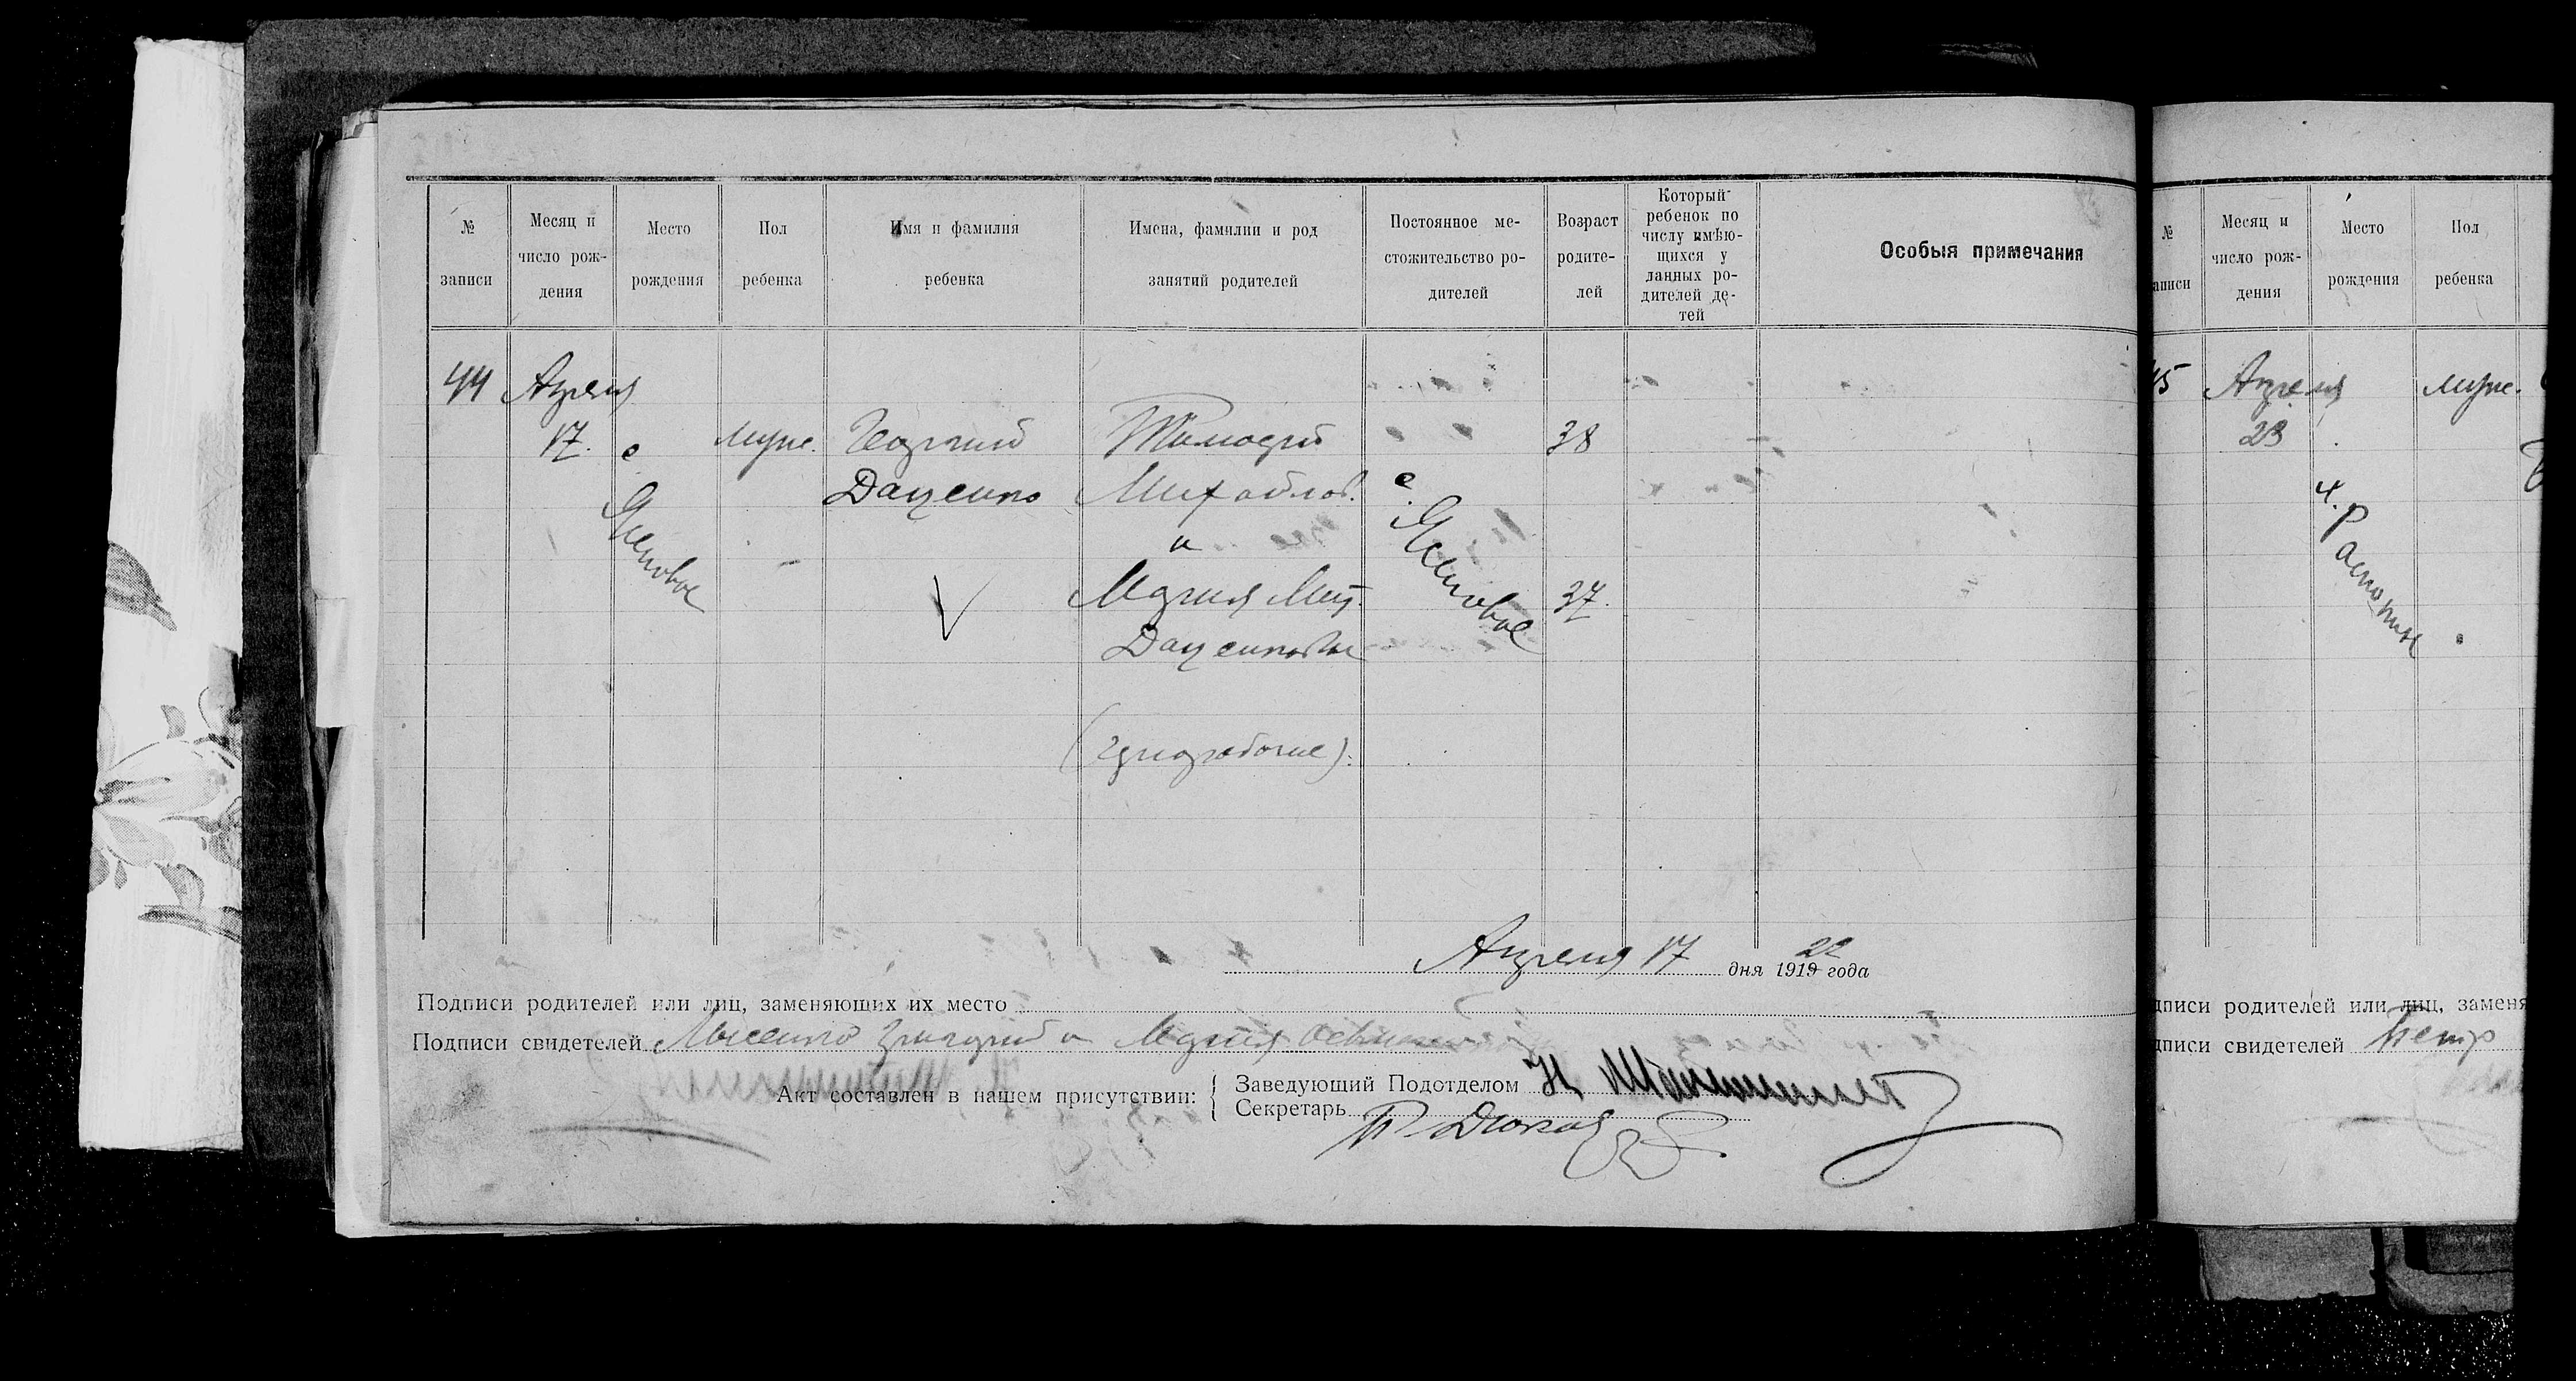 № записи
Месяц и число рождения
Место рождения
Пол ребенка
Имя и фамилия ребенка
Имена, фамилии и род занятий родителей
Постоянное местожительство родителей
Возраст родителей
Который ребенок по числу имѣющихся у данных родителей детей
Особыя примечания
44 Апреля
17. с муж. Георгий Тимофей 38
Даценко Михайлов. с.
и
Мария Мит. 37.
Даценковы
Апреля 17 дня 1919 22 года
Подписи родителей или лиц, заменяющих их место
Подписи свидетелей Лысенко Григорий и Мария
Акт составлен в нашем присутствии:
Заведующий Подотделом
Секретарь
№ аписи
Месяц и число рождения
Место рождения
Пол ребенка
45 Апреля муж.
23
дписи родителей или лиц, заменя
дписи свидетелей Петр